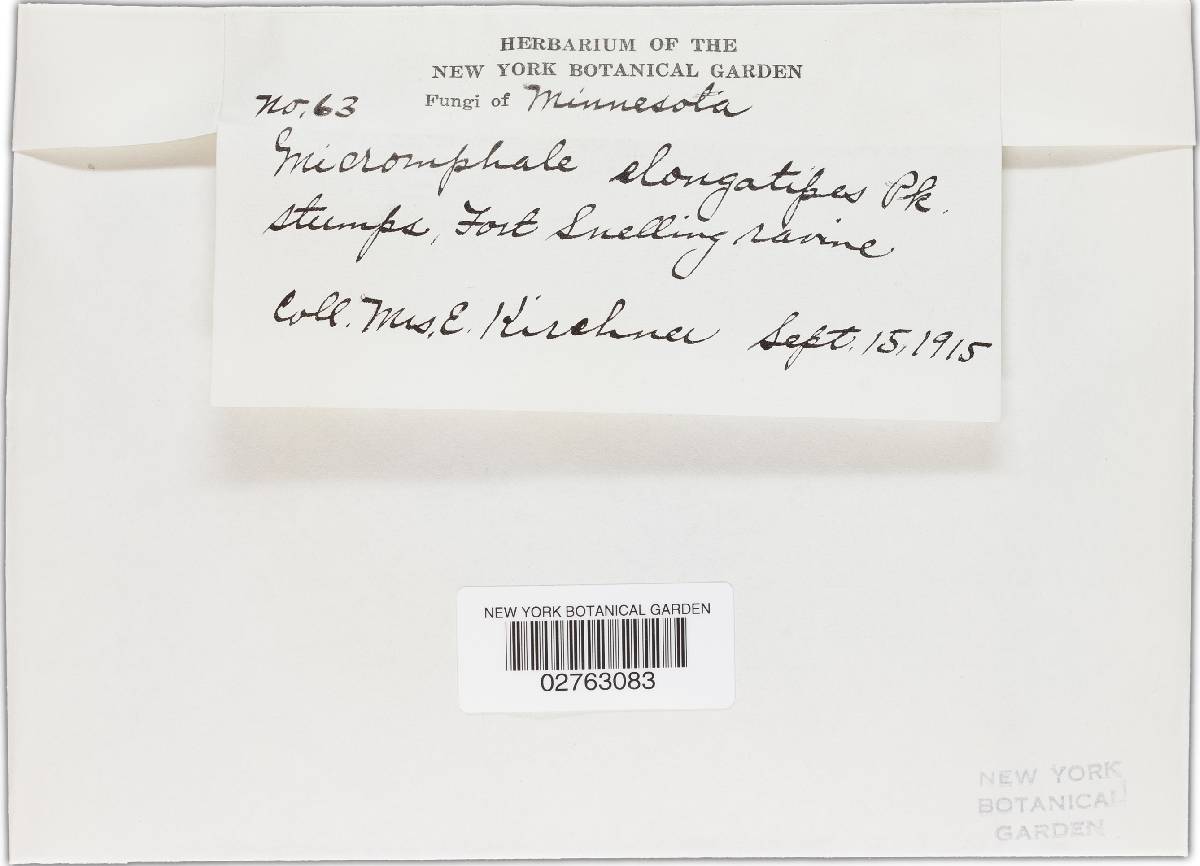 HERBARIUM OF THE
NEW YORK BOTANICAL GARDEN
No. 63 Fungi of Minnesota
Micromphale elongatipes Pk.
stumps, Fort Snelling ravine
Coll. Mrs. E. Kirchner Sept. 15, 1915
NEW YORK BOTANICAL GARDEN
02763083
NEW YORK
BOTANICAL
GARDEN